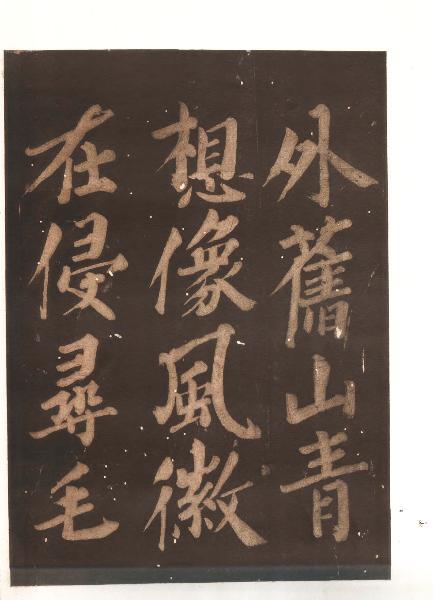 外舊山青
想像風徽
在侵尋毛